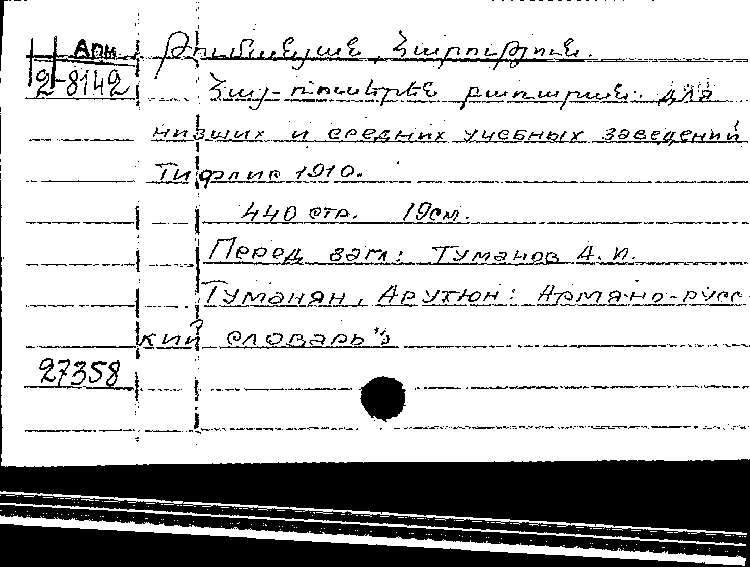 Арм Թումանյան, Հարություն.
2-8142 Հայ-ռուսերեն բառարան. для
низших и средних учебных заведений
Тифлис 1910.
440 стр. 19см.
Перед загл: Туманов А. И.
Туманян, Арутюн: Армяно-русс
кий словарь"
27358